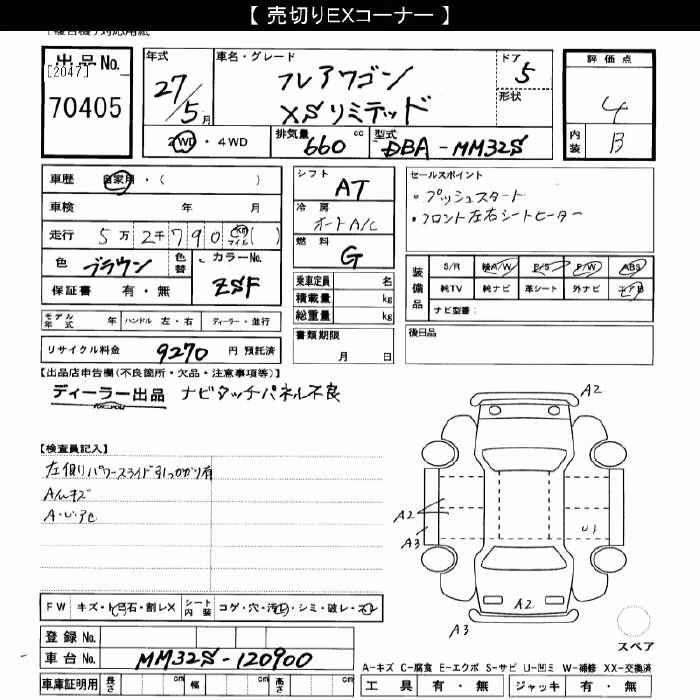 【 売切りEXコーナー 】
出品No.
[2047]
70405
年式
27/5月
車名・グレード
フレアワゴン
XSリミテッド
ドア
5
形状
評価点
4
内装
B
2WD・4WD
排気量 660 cc
型式 DBA-MM32S
車歴 自家用・( )
車検 年 月
走行 5万2千790 Km マイル ( )
色 ブラウン
色替
カラーNo. ZSF
保証書 有・無
モデル年式 年 ハンドル 左・右 ディーラー・並行
リサイクル料金 9270 円 預託済
シフト AT
冷房 オートA/C
燃料 G
乗車定員 名
積載量 kg
総重量 kg
書類期限
月 日
セールスポイント
・プッシュスタート
・フロント左右シートヒーター
装備品
S/R 純A/W P/S P/W ABS
純TV 純ナビ 革シート 外ナビ
ナビ型番:
後日品
【出品店申告欄(不良箇所・欠品・注意事項等)】
ディーラー出品 ナビタッチパネル不良
【検査員記入】
左側リパワースライド引っかかり有
A2
A2
A3
U1
A2
A3
スペア
FW キズ・飛石・割レX シート内装 コゲ・穴・汚レ・シミ・破レ・スレ
登録No.
車台No. MM32S-120900
車庫証明用 長さ cm 幅 cm 高さ cm
A-キズ C-腐食 E-エクボ S-サビ U-凹ミ W-補修 XX-交換済
工具 有・無 ジャッキ 有・無